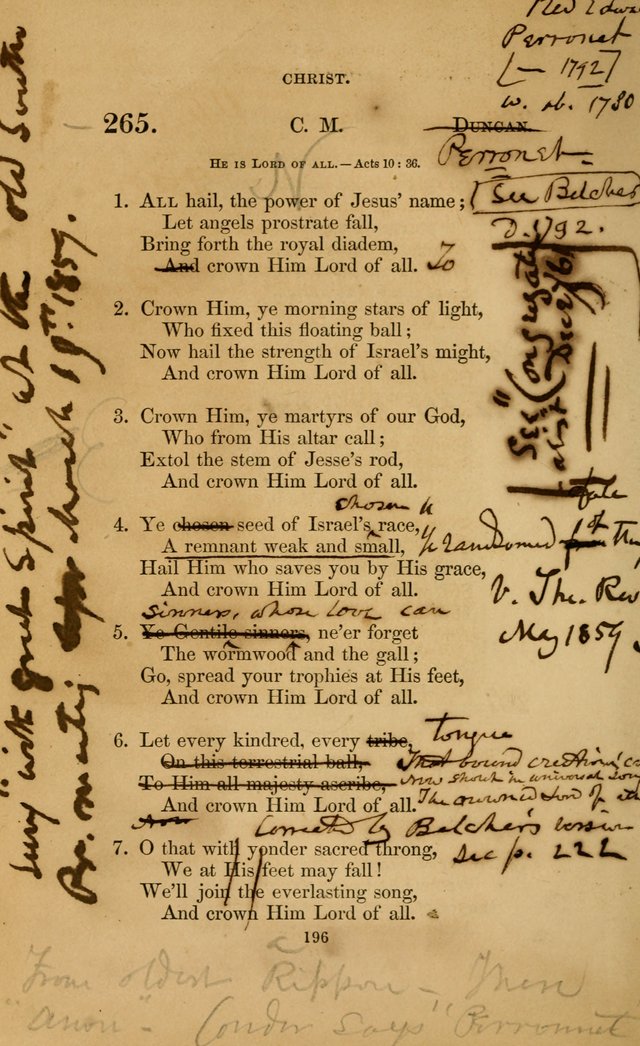 Rev Edwa
Perronet
[— 1792]
w. ab. 1780
CHRIST.
265. C. M. Duncan.
Perronet
He is Lord of all.—Acts 10: 36.
See Belcher
D. 1792.
1. All hail, the power of Jesus' name;
Let angels prostrate fall,
Bring forth the royal diadem,
And crown Him Lord of all. To
2. Crown Him, ye morning stars of light,
Who fixed this floating ball;
Now hail the strength of Israel's might,
And crown Him Lord of all.
3. Crown Him, ye martyrs of our God,
Who from His altar call;
Extol the stem of Jesse's rod,
And crown Him Lord of all.
chosen
4. Ye chosen seed of Israel's race,
A remnant weak and small, ye ransomed of the
Hail Him who saves you by His grace,
And crown Him Lord of all. V. The. Rev
sinners, whose love can
5. Ye Gentile sinners, ne'er forget May 1859
The wormwood and the gall;
Go, spread your trophies at His feet,
And crown Him Lord of all.
6. Let every kindred, every tribe, tongue
On this terrestrial ball, That bound creation's
To Him all majesty ascribe, Now shout in universal song
And crown Him Lord of all. The crowned Lord of all
Now Corrected by Belcher's version
7. O that with yonder sacred throng, See p. 222
We at His feet may fall!
We'll join the everlasting song,
And crown Him Lord of all.
196
From oldest Rippon — There
"anon". Conder says "Perronet
sung "with great spirit" at the old South
Pr. meeting March 19th. 1857.
See "Congregati
Dec 276